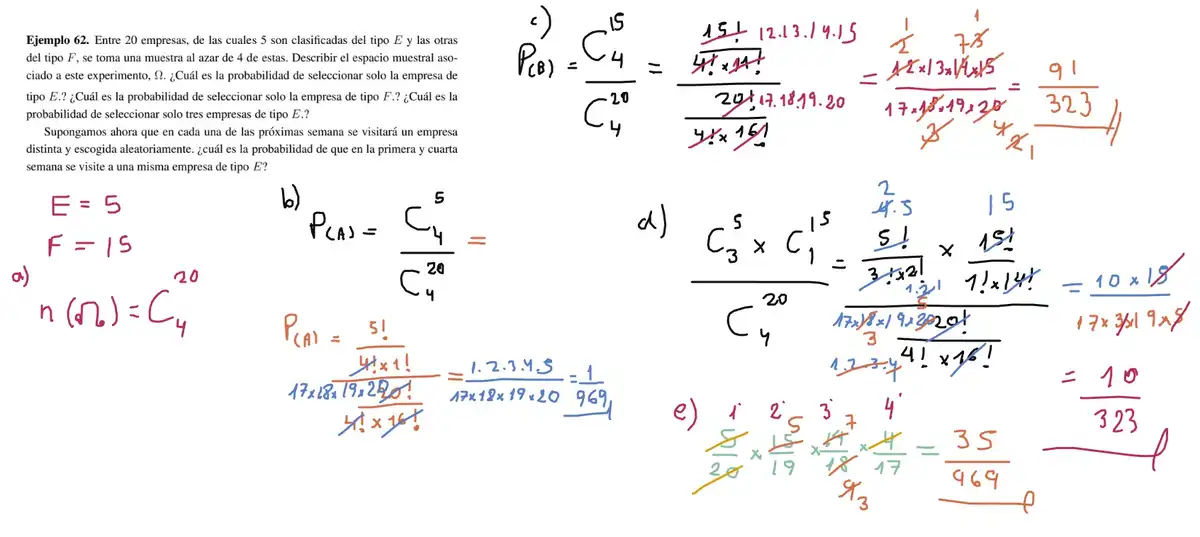 Ejemplo 62. Entre 20 empresas, de las cuales 5 son clasificadas del tipo E y las otras
del tipo F, se toma una muestra al azar de 4 de estas. Describir el espacio muestral aso-
ciado a este experimento, Ω. ¿Cuál es la probabilidad de seleccionar solo la empresa de
tipo E.? ¿Cuál es la probabilidad de seleccionar solo la empresa de tipo F.? ¿Cuál es la
probabilidad de seleccionar solo tres empresas de tipo E.?
Supongamos ahora que en cada una de las próximas semana se visitará un empresa
distinta y escogida aleatoriamente. ¿cuál es la probabilidad de que en la primera y cuarta
semana se visite a una misma empresa de tipo E?
E = 5
F = 15
a)
n(Ω) = C 20 4
b)
P(A) = C 5 4 / C 20 4 =
P(A) = 5! / 4! x 1!
17x18x19x20 20! / 4! x 16!
= 1.2.3.4.5 / 17x18x19x20 = 1 / 969
c)
P(B) = C 15 4 / C 20 4 =
15! 12.13.14.15
4! x 11!
20! 17.18.19.20
4! x 16!
1 1
2 7 3
= 12x13x14x15 / 17x18x19x20 = 91 / 323
3 4 2 1
d)
C 5 3 x C 15 1 / C 20 4 =
2
4.5 15
5! x 15!
3! x 2! 1! x 14!
1.2 1
5
17x18x19x20 20!
3
1.2.3.4 4! x 16!
= 10 x 15 / 17x3x19x5
= 10 / 323
e) 1° 2° 3° 4°
5 7
5/20 x 15/19 x 14/18 x 4/17 = 35 / 969
9 3